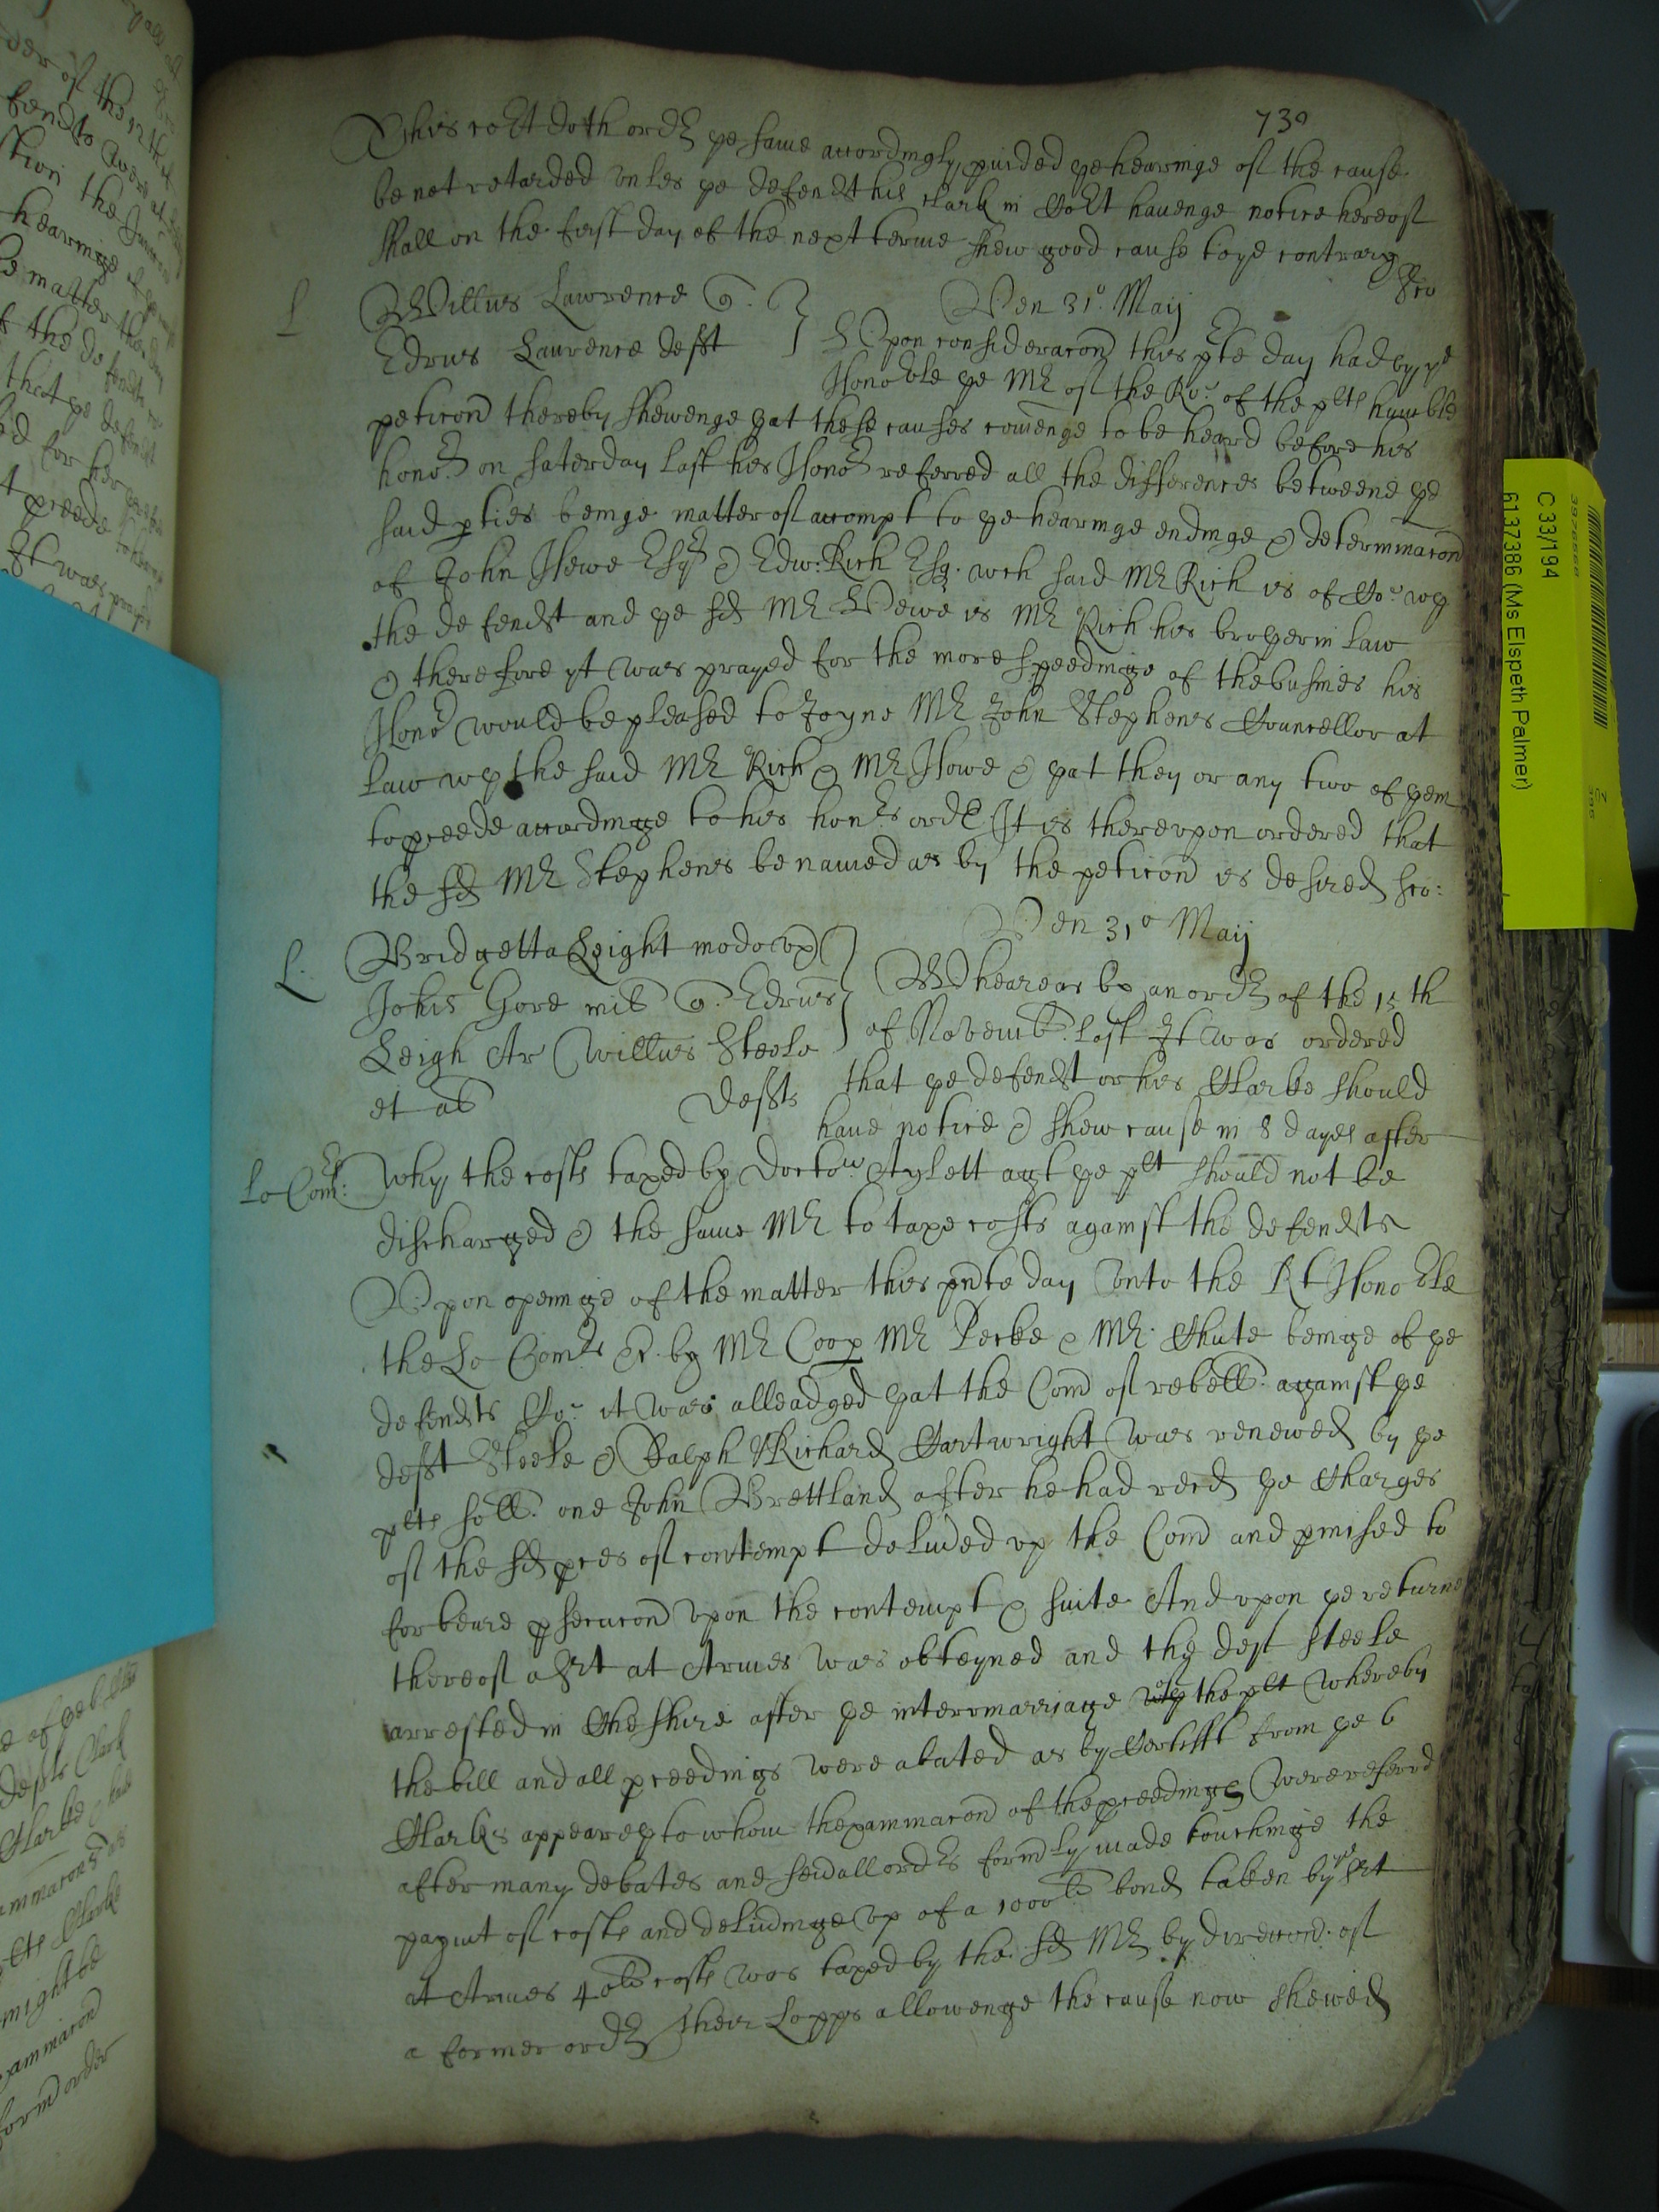 730
This co^rt doth ord^r ye same accordingly, p̱vided ye hearinge of the cause
be not retarded vnles ye defend^t his Clark in Co^rt havenge notice hereof
shall on the first day of the next terme shew good cause to ye contrary
&co
L Willus Lawrence q. } Ven 31° Maij
Edrus Laurence def^t } Vpon consideracon this p^rte day had by y^e
Hono^ble ye M^r of the Ro: of the pl^ts humble
peticon thereby shewenge yat these causes comenge to be heard before his
hono^r on Saterday last his Hono^r referred all the differences betweene ye
said p̱ties beinge matter of accompt to ye hearinge endinge & determinacon
of John Howe Esq^r & Edw: Rich Esq. wch said M^r Rich is of Co: w^th
the defend^t and ye s^d M^r Howe is M^r Rich his broyer in law
& therefore yt was prayed for the more speedinge of the busines his
Hono^r would be pleased to Joyne M^r John Stephens Councellor at
law w^th the said M^r Rich & M^r Howe & yat they or any two of yem
to p̱ceede accordinge to his hon^rs ord^r It is therevpon ordered that
the s^d M^r Stephens be named as by the peticon is desired &co:
Ven 31° Maij
L. Bridgetta Leight modo vx }
Johis Gore mil q. Edrus } Wheareas by an ord^r of the 15th
Leigh Ar Willus Steele } of Novemb. last It was ordered
et al Def^ts that ye defend^t or his Clarke should
have notice & shew cause in 8 dayes after
Lo Com^rs: Why the costs taxed by Docto^r Aylett ag^t ye pl^t should not be
discharged & the same M^r to taxe costs against the defend^ts
Vpon openinge of the matter this p^rnte day vnto the R^t Hono^ble
the Lo Com^rs &. by M^r Coop̱ M^r Pecke & M^r. Chute beinge of ye
defend^ts Co: it was alleadged yat the Com of rebell. against ye
def^t Steele & Ralph & Richard Cartwright was renewed by ye
pl^ts soll. one John Brettland after he had rec^d ye Charges
of the s^d p̱ces of contempt delived vp the Com and p̱mised to
forbeare p̱secucon vpon the contempt & suite And vpon ye returne
thereof a S^rt at Armes was obteyned and the def^t Steele
arrested in Cheshire after ye intermarriage w^th the pl^t whereby
the bill and all p̱ceedings were abated as by Certif^t from ye 6
Clarks appeareth to whom thexaminacon of the p̱ceedings were referrd
after many debates and sevall ord^rs form^rly made touchinge the
paymt of costs and delivinge vp of a 1000^li bond taken by ye S^rt
at Armes 40^li costs was taxed by the s^d M^r by direccon of
a former ord^r Their Lo^pps allowenge the cause now shewed
C 33/194
6137386 (Ms Elspeth Palmer)